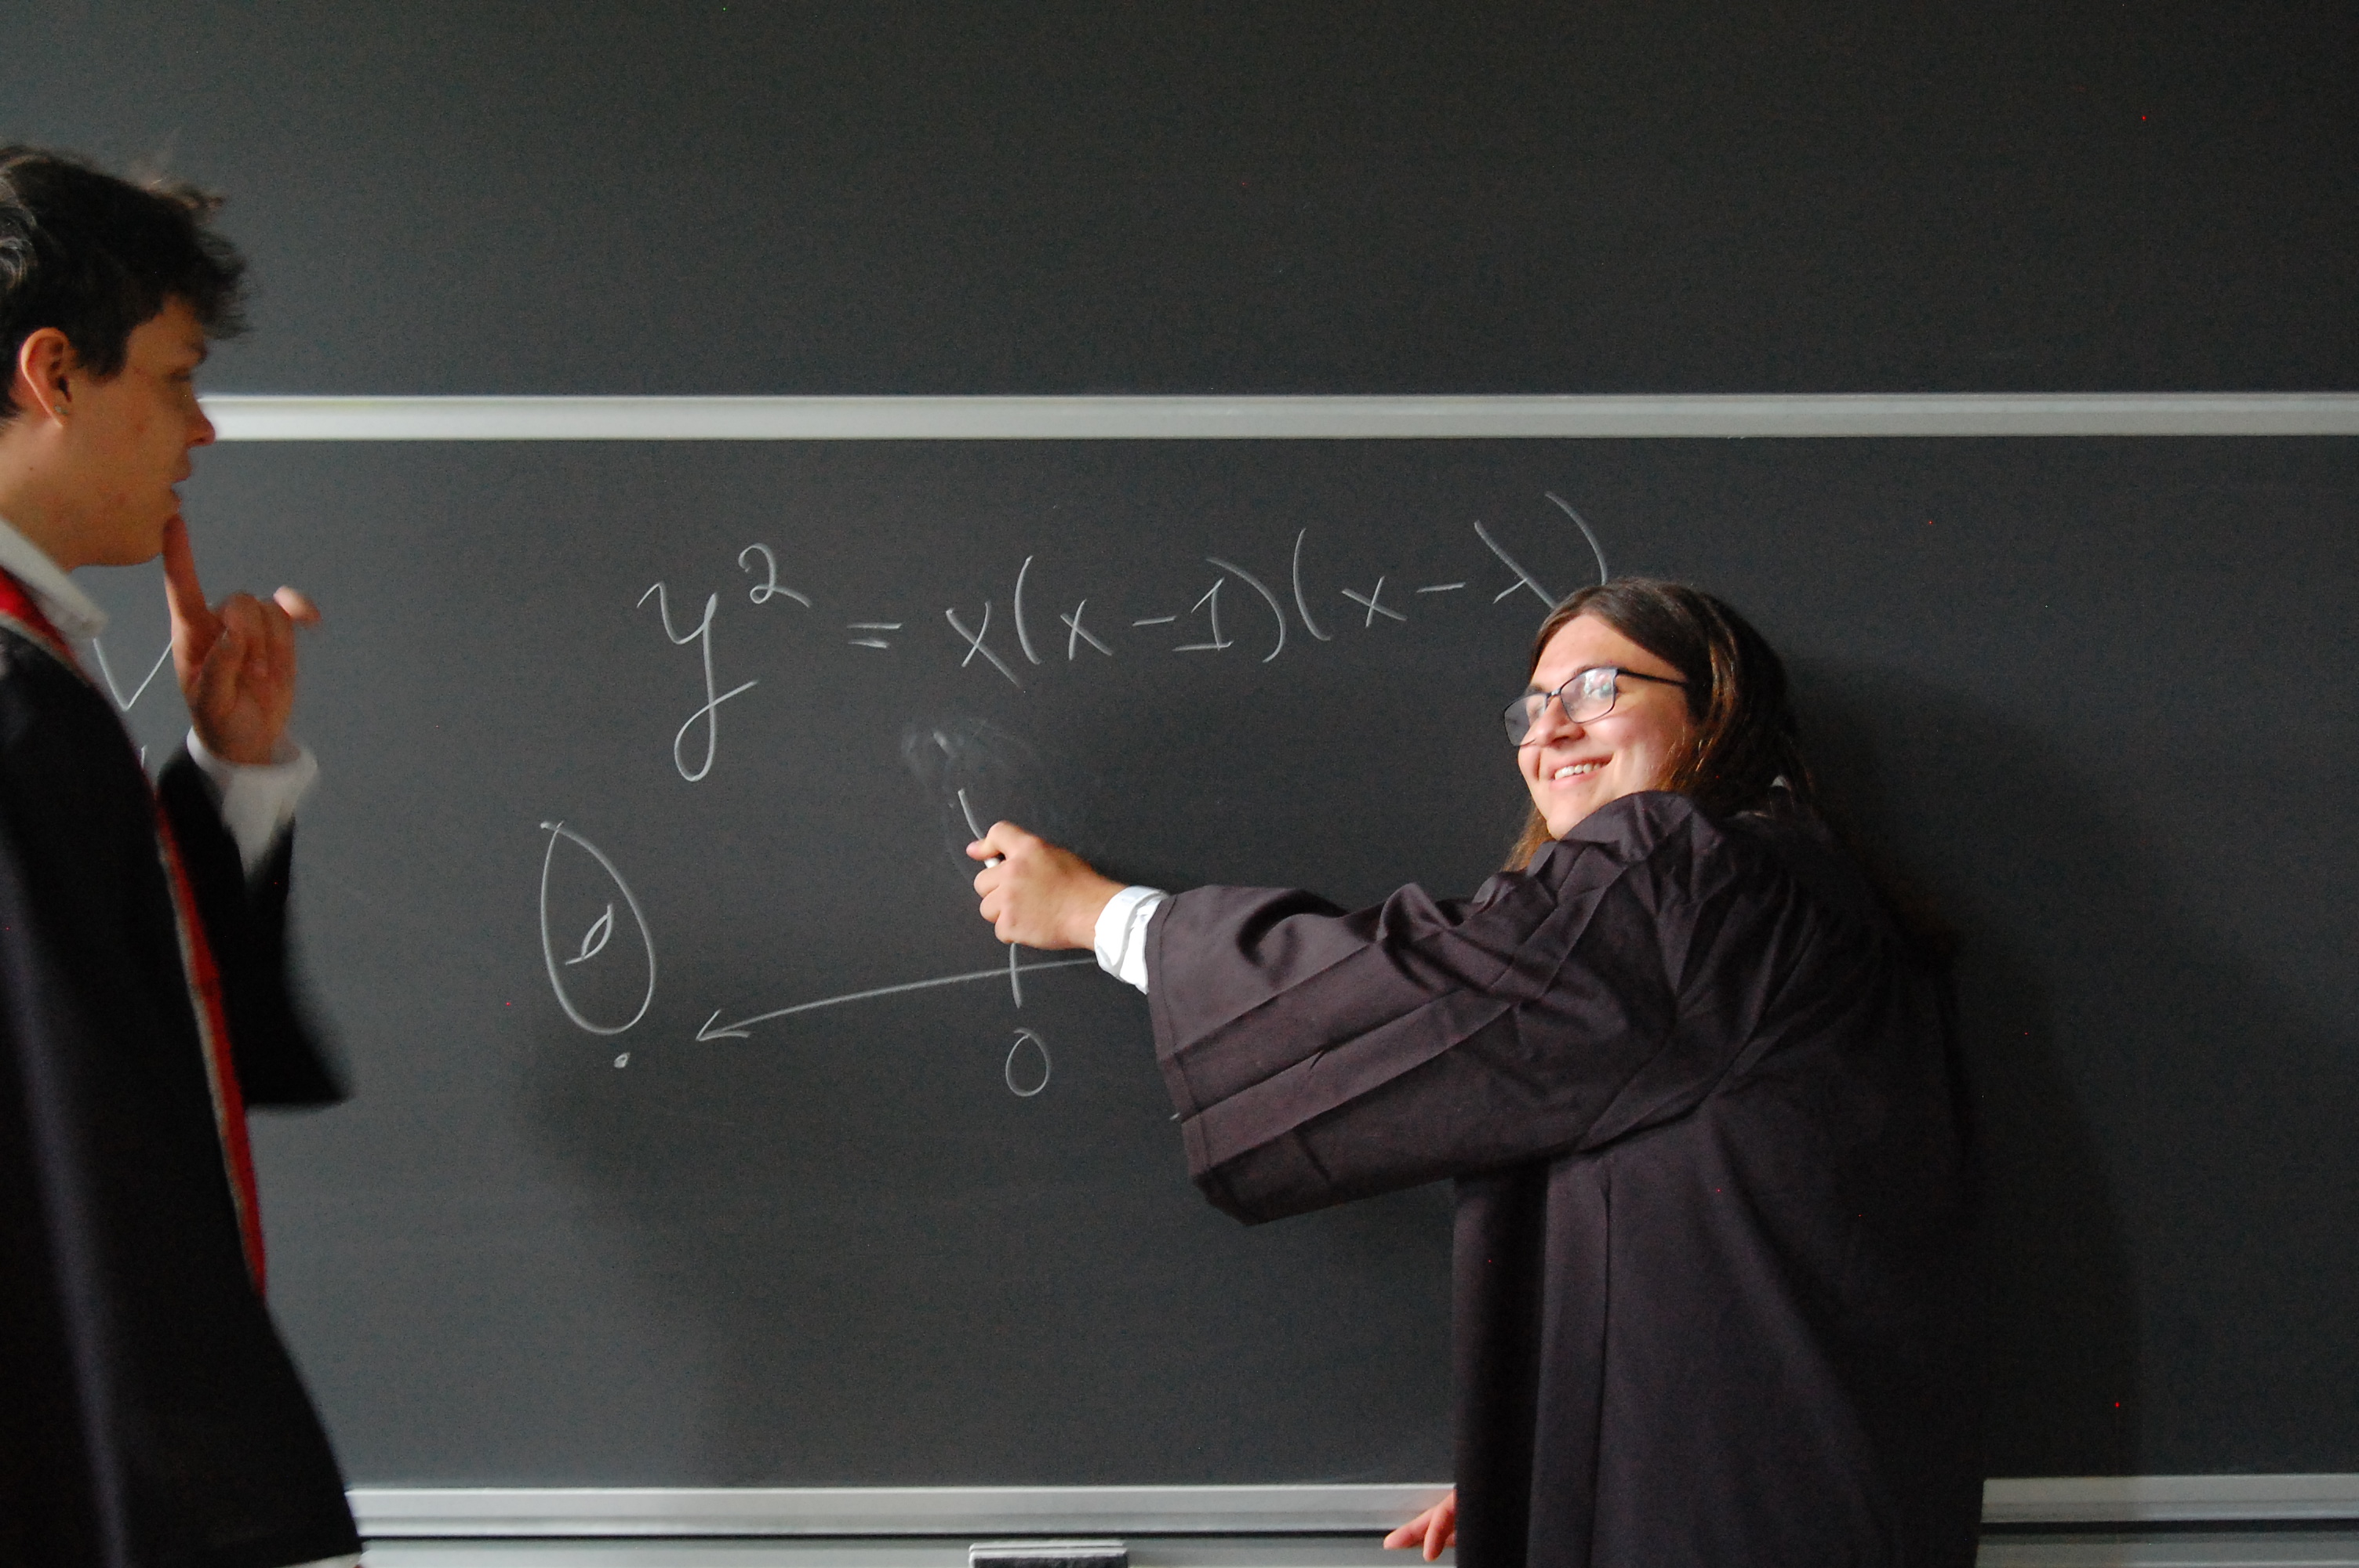 y² = x(x-1)(x-λ)
0